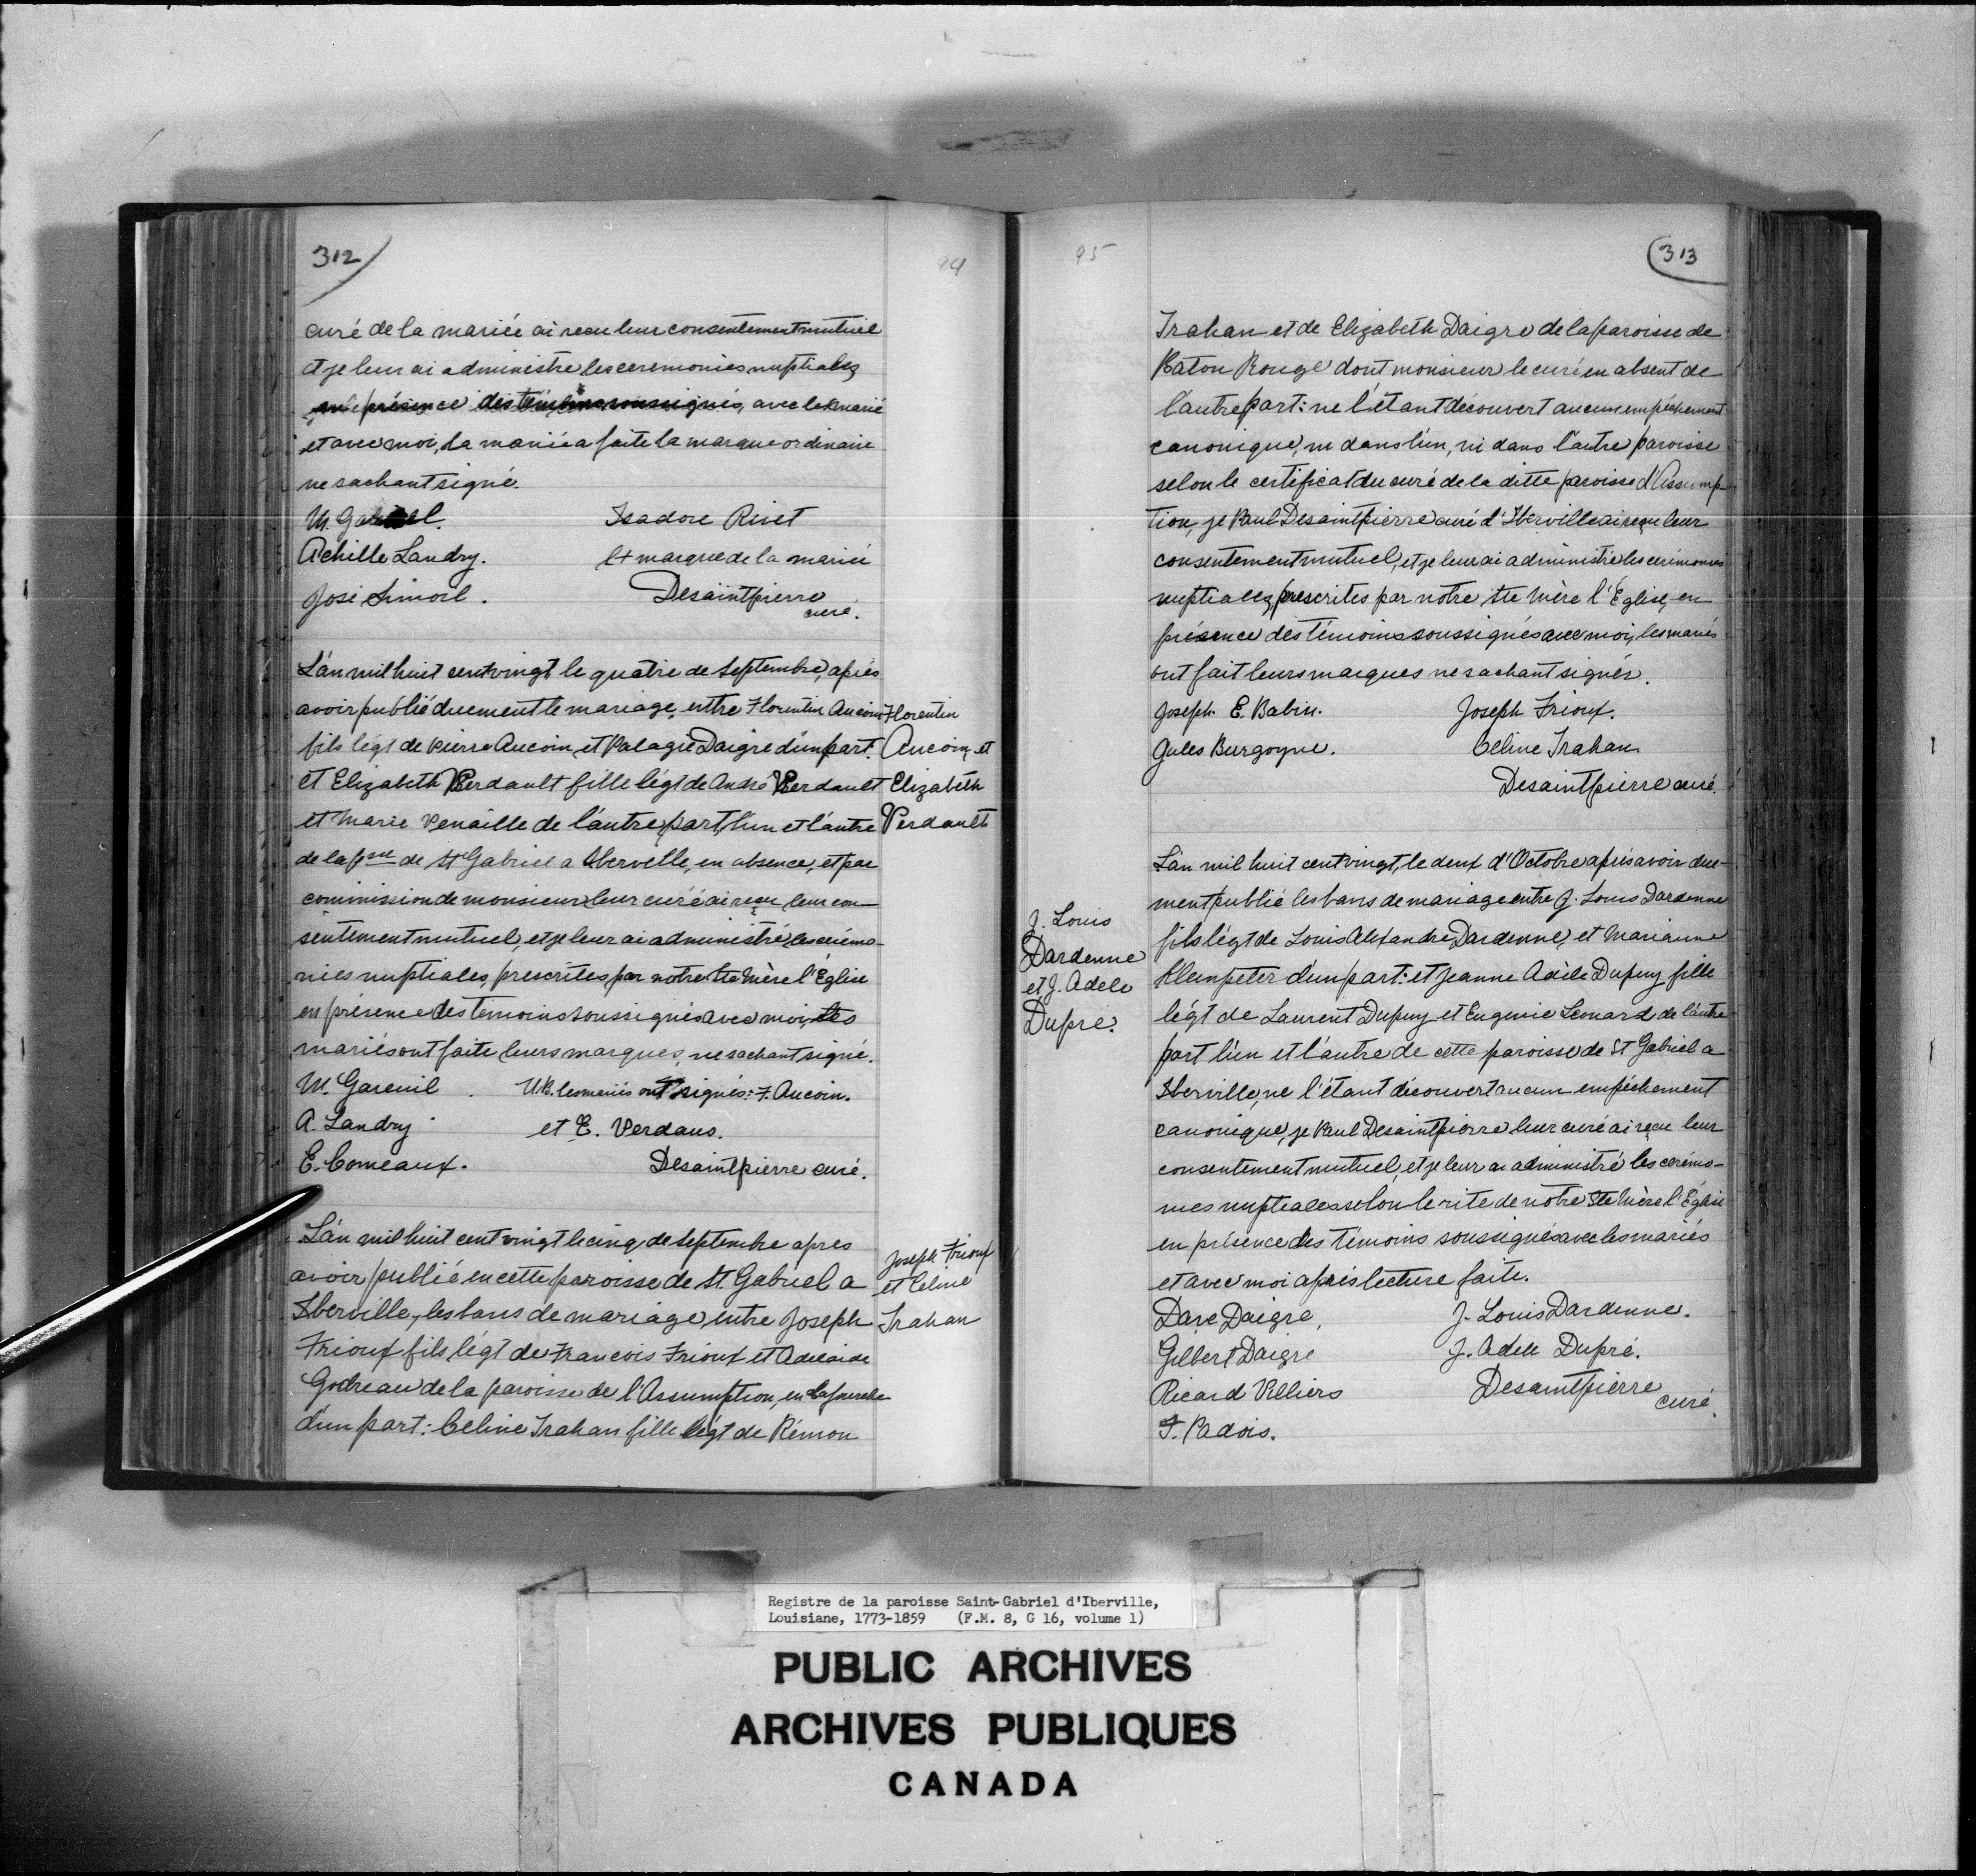 312
94
curé de la mariée ai recu leur consentement mutuel
et je leur ai administre les ceremonies nuptiales
en présence des témoins soussignés, avec le marié
et avec moi, la mariée a faite la marque ordinaire
ne sachant signé.
M. Gabriel. Isadore Rivet
Achille Landry. + marque de la mariée
José Simoil. Desaintpierre
curé.
L'an mil huit cent vingt le quatre de Septembre, après
avoir publié duement le mariage, entre Florentin Aucoin
fils légt de Pierre Aucoin, et Palagie Daigre d'un part.
et Elizabeth Verdault fille légt de André Verdault
et Marie Venaille de l'autre part, l'un et l'autre
de la psse de St Gabriel a Iberville, en absence, et par
commission de monsieur leur curé ai reçu leur con-
sentement mutuel, et je leur ai administré, les cérémo-
nies nuptiales, prescrites par notre Ste Mère l'Église
en présence des temoins soussignés avec moi, les
mariés ont faite leurs marques, ne sachant signé.
M. Gareuil. N.B. les mariés ont signés: F. Aucoin.
A. Landry et E. Verdaus.
E. Comeaux. Desaintpierre curé.
Florentin
Aucoin, et
Elizabeth
Verdault
L'an mil huit cent vingt le cinq de Septembre apres
avoir publié en cette paroisse de St. Gabriel a
Iberville, les bans de mariage, entre Joseph
Frioux fils légt de Francois Frioux et Adelaide
Godreau de la paroisse de l'Assumption, en Lafourche
d'un part: Celine Trahan fille légt de Rémon
Joseph Frioux
et Celine
Trahan
95
313
Trahan et de Elizabeth Daigre de la paroisse de
Baton Rouge dont monsieur le curé en absent de
l'autre part: ne l'étant découvert aucun empéchement
canonique, ni dans l'un, ni dans l'autre paroisse
selon le certificat du curé de la ditte paroisse d'Assump-
tion, je Paul Desaintpierre curé d'Iberville ai reçu leur
consentement mutuel, et je leur ai administré les cerimonies
nuptiales, prescrites par notre Ste Mère l'Église, en
présence des témoins soussignés avec moi, les mariés
ont fait leurs marques ne sachant signés.
Joseph E. Babin. Joseph Frioux.
Jules Burgoyne. Celine Trahan
Desaintpierre curé.
L'an mil huit cent vingt, le deux d'Octobre après avoir due-
ment publié les bans de mariage entre J. Louis Dardenne
fils légt de Louis Alexandre Dardenne, et Marianne
Kleinpeter d'un part: et Jeanne Adèle Dupuy fille
légt de Laurent Dupuy et Eugenie Leonard de l'autre
part l'un et l'autre de cette paroisse de St Gabriel a
Iberville, ne l'étant découvert aucun empéchement
canonique, je Paul Desaintpierre leur curé ai reçu leur
consentement mutuel, et je leur ai administré les cerémo-
nies nuptiales selon le rite de notre Ste Mère l'Église
en présence des témoins soussignés avec les mariés
et avec moi après lecture faite.
Dave Daigre, J. Louis Dardenne.
Gilbert Daigre J. Adele Dupré.
Ricard Villiers Desaintpierre
curé.
F. Padois.
J. Louis
Dardenne
et J. Adele
Dupré.
Registre de la paroisse Saint-Gabriel d'Iberville,
Louisiane, 1773-1859 (F.M. 8, G 16, volume 1)
PUBLIC ARCHIVES
ARCHIVES PUBLIQUES
CANADA